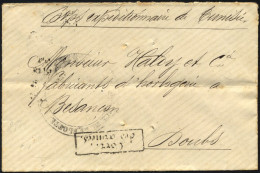 Corps expéditionnaire de Tunisie
Monsieur Hatey et Cie
Fabricants d'horlogerie à
Besançon
Doubs
Corr.
des armées